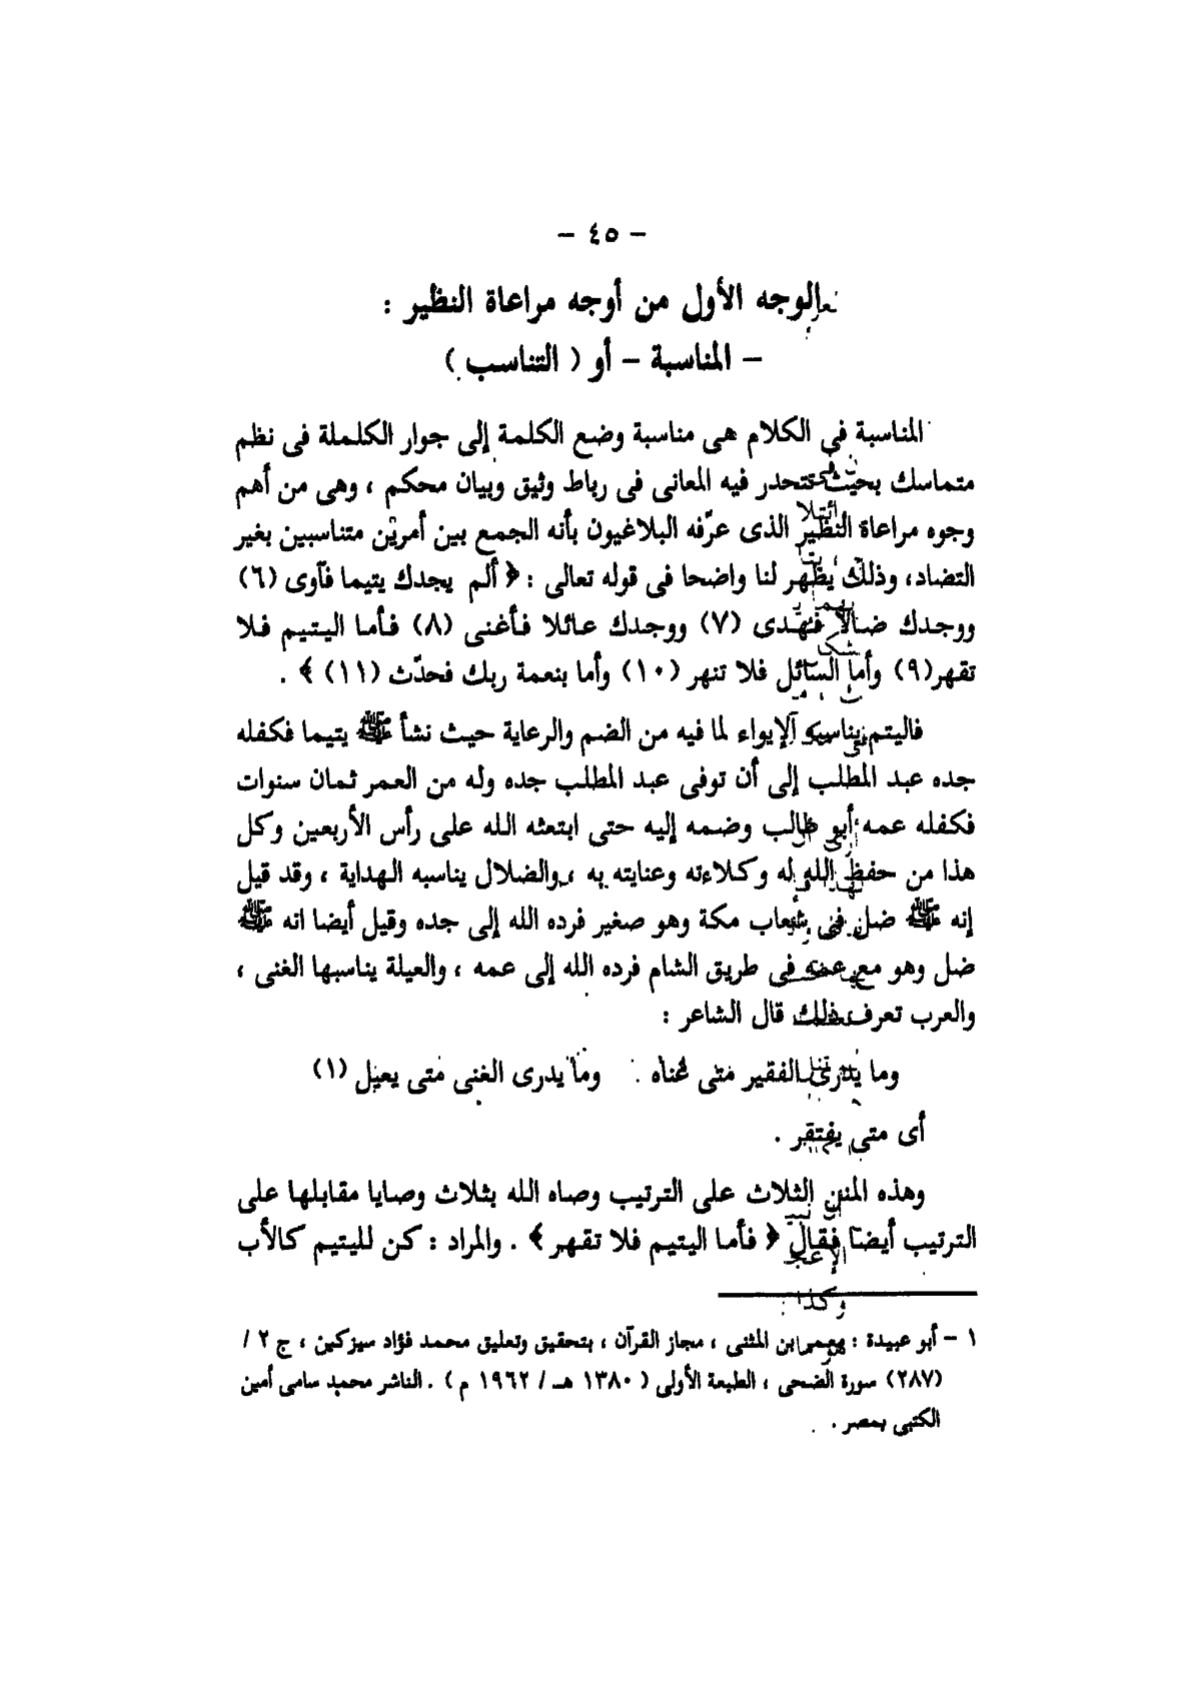 - ٤٥ -
الوجه الأول من أوجه مراعاة النظير :
- المناسبة - أو ( التناسب )
المناسبة فى الكلام هى مناسبة وضع الكلمة إلى جوار الكلملة فى نظم
متماسك بحيث تتحدر فيه المعانى فى رباط وثيق وبيان محكم ، وهى من أهم
وجوه مراعاة النظير الذى عرّفه البلاغيون بأنه الجمع بين أمرين متناسبين بغير
التضاد، وذلك يظهر لنا واضحا فى قوله تعالى : ﴿ ألم يجدك يتيما فآوى (٦)
ووجدك ضالا فهدى (٧) ووجدك عائلا فأغنى (٨) فأما اليتيم فلا
تقهر(٩) وأما السائل فلا تنهر (١٠) وأما بنعمة ربك فحدّث (١١) ﴾ .
فاليتم يناسبه الإيواء لما فيه من الضم والرعاية حيث نشأ ﷺ يتيما فكفله
جده عبد المطلب إلى أن توفى عبد المطلب جده وله من العمر ثمان سنوات
فكفله عمه أبو طالب وضمه إليه حتى ابتعثه الله على رأس الأربعين وكل
هذا من حفظ الله له وكلاءته وعنايته به ، والضلال يناسبه الهداية ، وقد قيل
إنه ﷺ ضل فى شعاب مكة وهو صغير فرده الله إلى جده وقيل أيضا انه ﷺ
ضل وهو مع عمه فى طريق الشام فرده الله إلى عمه ، والعيلة يناسبها الغنى ،
والعرب تعرف ذلك قال الشاعر :
وما يدرى الفقير متى غناه . وما يدرى الغنى متى يعيل (١)
أى متى يفتقر .
وهذه المنن الثلاث على الترتيب وصاه الله بثلاث وصايا مقابلها على
الترتيب أيضا فقال ﴿ فأما اليتيم فلا تقهر ﴾ . والمراد : كن لليتيم كالأب
١ - أبو عبيدة : معمر ابن المثنى ، مجاز القرآن ، بتحقيق وتعليق محمد فؤاد سيزكين ، ج ٢ /
(٢٨٧) سورة الضحى ، الطبعة الأولى ( ١٣٨٠ هـ / ١٩٦٢ م ) . الناشر محمد سامى أمين
الكتبى بمصر .